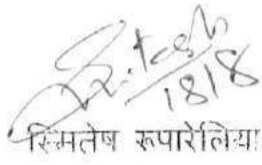 18/8
स्मितेष रूपारेलिया